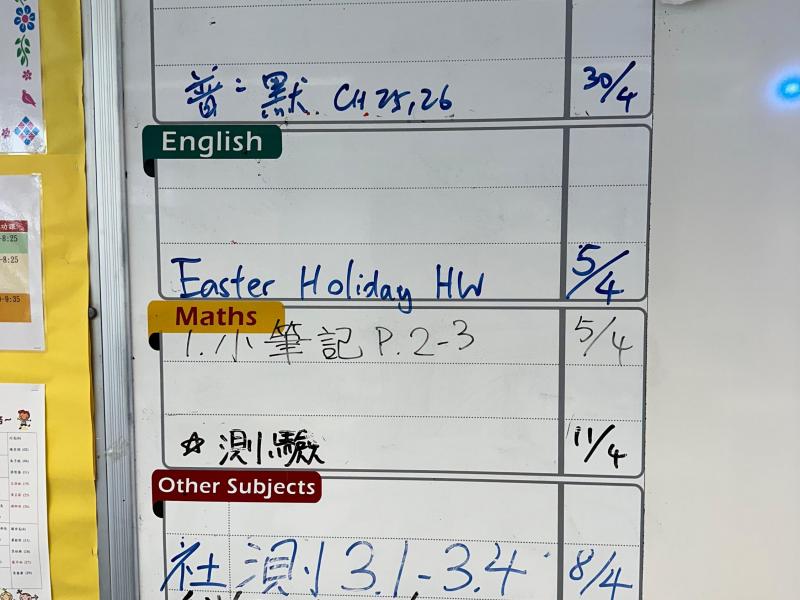 普：默 CH 25,26 30/4
English
Easter Holiday HW 5/4
Maths
1. 小筆記 P.2-3 5/4
☆ 測驗 11/4
Other Subjects
社 測 3.1-3.4 8/4
8:25
8:25
9:35